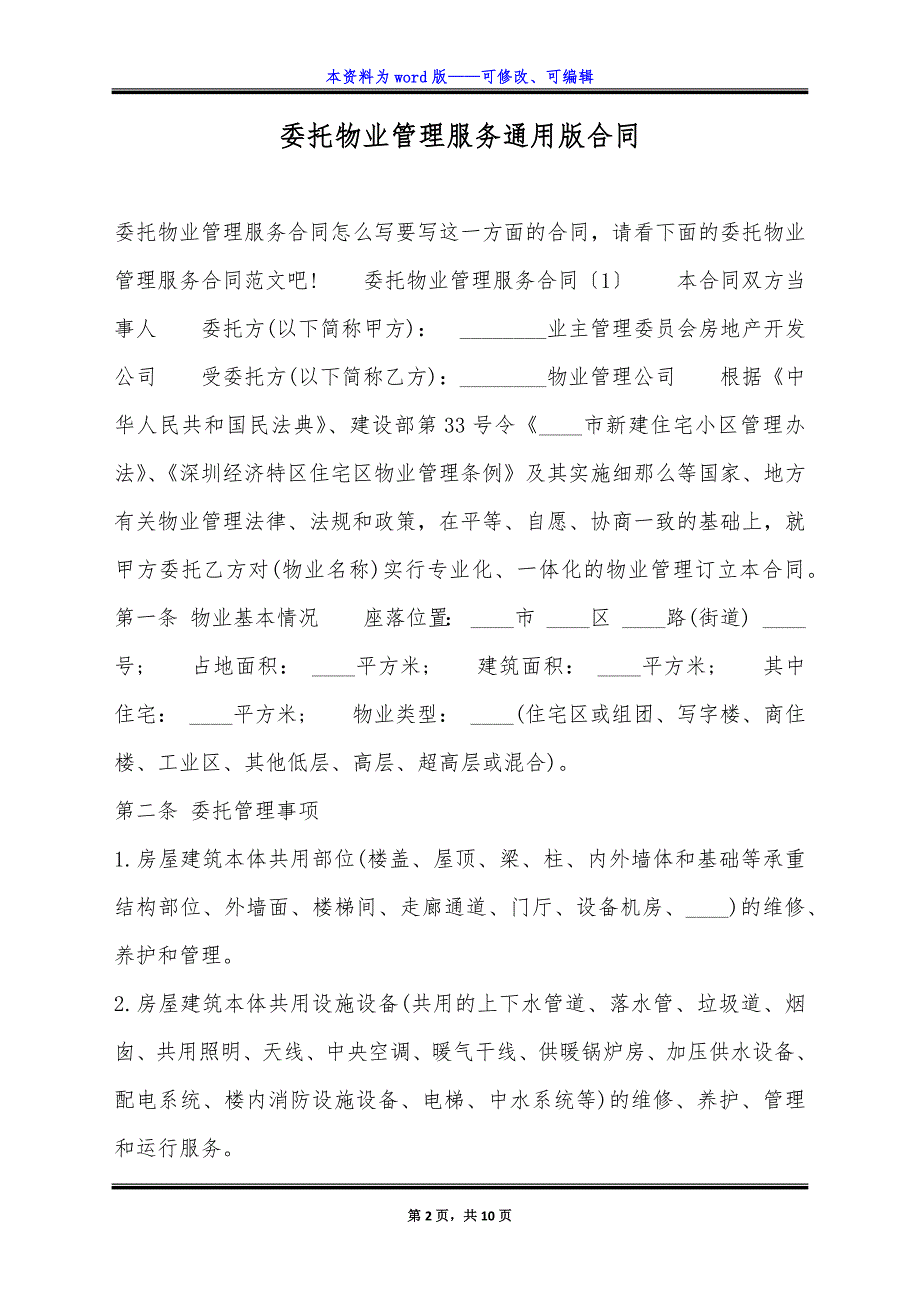 本资料为 word 版——可修改、可编辑
委托物业管理服务通用版合同
委托物业管理服务合同怎么写要写这一方面的合同，请看下面的委托物业
管理服务合同范文吧!　　委托物业管理服务合同〔1〕　　本合同双方当
事人　　委托方(以下简称甲方)：　________业主管理委员会房地产开发
公司　　受委托方(以下简称乙方)：________物业管理公司　　根据《中
华人民共和国民法典》、建设部第 33 号令《____市新建住宅小区管理办
法》、《深圳经济特区住宅区物业管理条例》及其实施细那么等国家、地方
有关物业管理法律、法规和政策，在平等、自愿、协商一致的基础上，就
甲方委托乙方对(物业名称)实行专业化、一体化的物业管理订立本合同。
第一条 物业基本情况　　座落位置：____市 ____区 ____路(街道) ____
号；　　占地面积：____平方米；　　建筑面积：____平方米；　　其中
住宅：____平方米；　　物业类型：____(住宅区或组团、写字楼、商住
楼、工业区、其他低层、高层、超高层或混合)。
第二条 委托管理事项
1.房屋建筑本体共用部位(楼盖、屋顶、梁、柱、内外墙体和基础等承重
结构部位、外墙面、楼梯间、走廊通道、门厅、设备机房、____)的维修、
养护和管理。
2.房屋建筑本体共用设施设备(共用的上下水管道、落水管、垃圾道、烟
囱、共用照明、天线、中央空调、暖气干线、供暖锅炉房、加压供水设备、
配电系统、楼内消防设施设备、电梯、中水系统等)的维修、养护、管理
和运行服务。
第 2 页，共 10 页